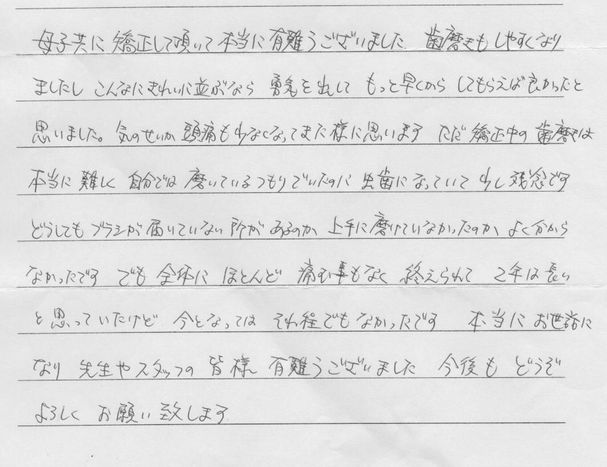 母子共に矯正して頂いて本当に有難うございました 歯磨きもしやすくなり
ましたし こんなにきれいに並ぶなら 勇気を出して もっと早くから してもらえば良かったと
思いました。気のせいか 頭痛も少なくなってきた様に思います ただ 矯正中の 歯磨きは
本当に 難しく 自分では 磨いているつもりでいたのに 虫歯になっていて 少し残念です
どうしても ブラシが 届いていない 所が あるのか 上手に磨けていなかったのか よく分から
なかったです でも 全体に ほとんど 痛む事もなく 終えられて 2年は長い
と思っていたけど 今となっては それ程でもなかったです 本当に お世話に
なり 先生やスタッフの 皆様 有難うございました 今後も どうぞ
よろしく お願い致します